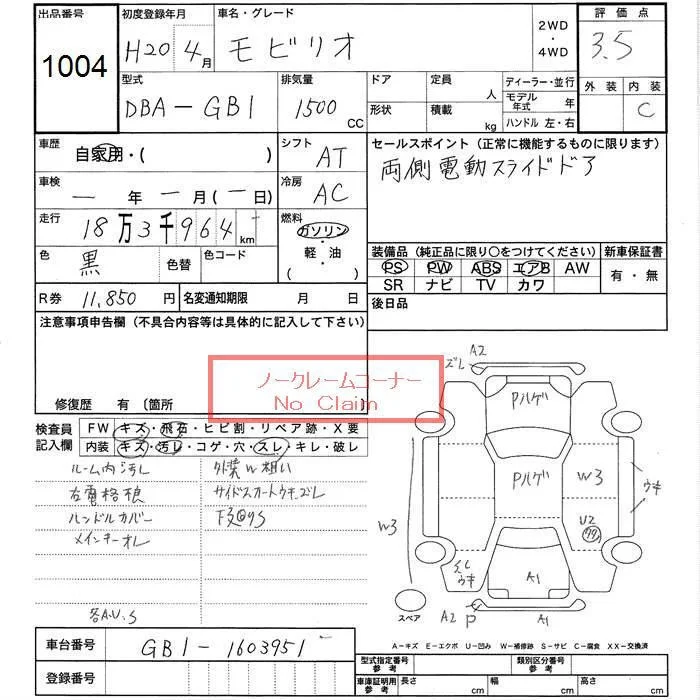 出品番号 初度登録年月 車名・グレード 2WD・4WD 評価点
1004 H20 4月 モビリオ 3.5
型式 排気量 ドア 定員 人 ディーラー・並行 外装 内装
DBA-GB1 1500 CC 形状 積載 kg モデル年式 年 C
ハンドル 左・右
車歴 自家用・( ) シフト AT セールスポイント(正常に機能するものに限ります)
車検 ー年ー月(ー日) 冷房 AC 両側電動スライドドア
走行 18万3千964km 燃料 ガソリン・軽・油・( )
色 黒 色替 色コード
装備品(純正品に限り○をつけてください) 新車保証書
PS PW ABS エアB AW 有・無
SR ナビ TV カワ
R券 11,850円 名変通知期限 月 日 後日品
注意事項申告欄(不具合内容等は具体的に記入して下さい)
ノークレームコーナー
No Claim
修復歴 有 〔箇所
検査員記入欄 FW キズ・飛石・ヒビ割・リペア跡・X要
内装 キズ・汚レ・コゲ・穴・スレ・キレ・破レ
ルーム内汚レ 外装W粗い
ハンドルカバー
メインキーオレ
各A.U.S
ズレ A2
Pハゲ
Pハゲ W3 ウキ
W3 U2
ウキ A1
スペア A2 P A1
車台番号 GB1-1603951
登録番号
A-キズ E-エクボ U-凹み W-補修跡 S-サビ C-腐食 XX-交換済
型式指定番号参考 類別区分番号参考
車庫証明用参考 長さ cm 幅 cm 高さ cm